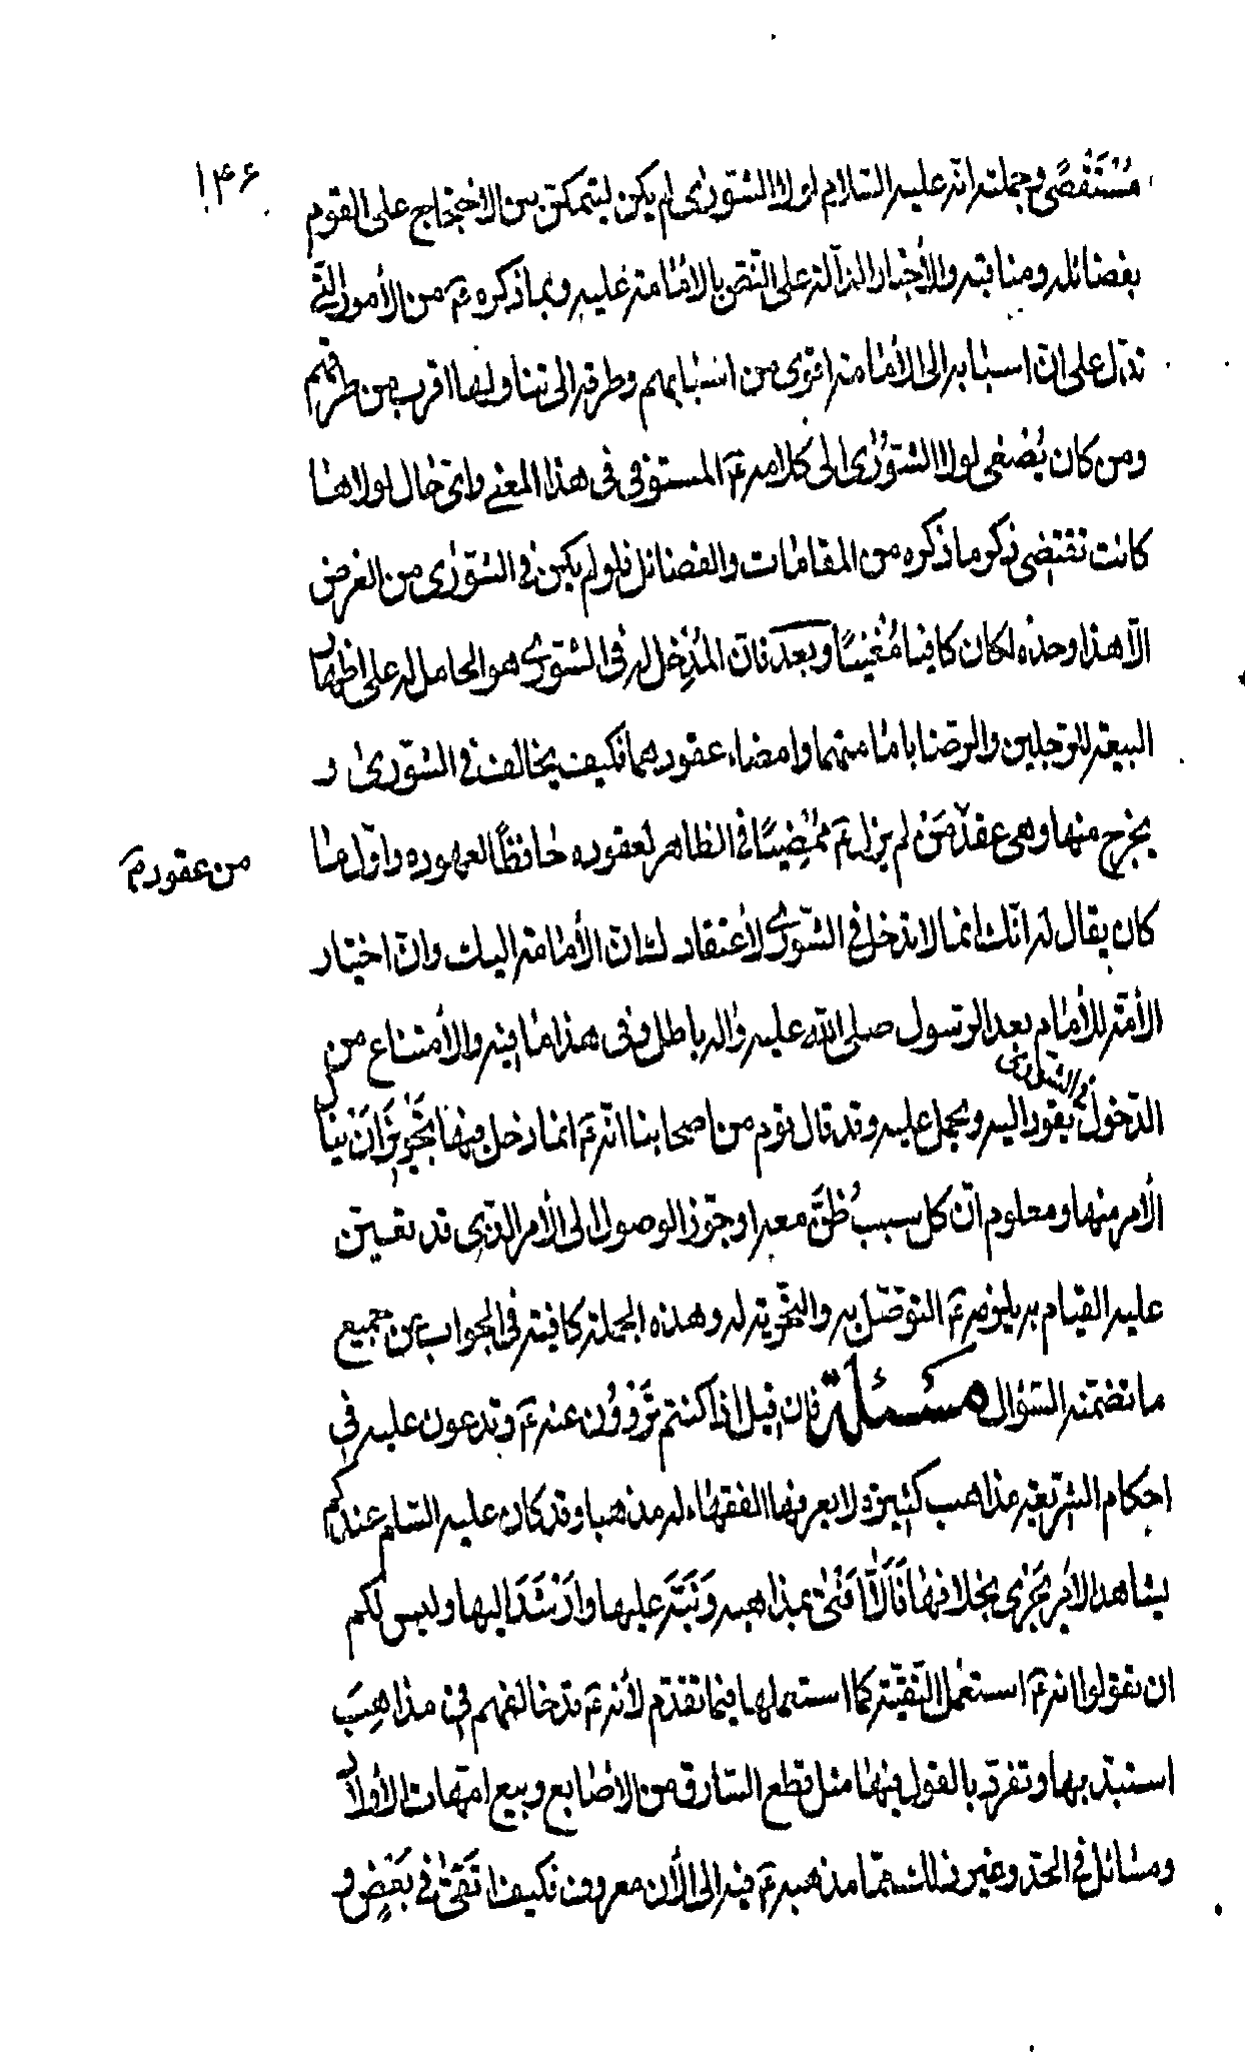 ۱۴۶
مُسْتَقْصًی و جملته انّه علیه السّلام لولا الشّوری لم یکن لیتمکّن من الاحتجاج علی القوم
بفضائله و مناقبه و الأخبار الدّالّة علی النّصّ بالامامة علیه و بما ذکره عَ من الأمور الّتی
تدلّ علی انّ اسبابه الی الامامة اقوی من اسبابهم و طرقه الی تناولها اقرب من طرقهم
و من کان یُصْغی لولا الشّوری الی کلامه عَ المستوفی فی هذا المعنی و ایّ حال لولاها
کانت تقتضی ذکر ما ذکره من المقامات و الفضائل فلو لم یکن فی الشّوری من الغرض
الّا هذا وحده لکان کافیا مُغْنیًا و بعد فانّ المُدْخِل له فی الشّوری هو الحامل له علی اظهار
البیعة للرّجلین و الرّضا بامامتهما و امضاء عقودهما فکیف یخالف فی الشّوری و
یخرج منها و هی عقدٌ مَنْ لم یزل عَ مُمْضِیًا فی الظاهر لعقوده حافظًا لعهوده و اوّل ما
من عقودهم
کان یقال له انّک انما لا تدخل فی الشّوری لاعتقادک انّ الأمامة الیک و انّ اختیار
الأمّة للأمام بعد الرّسول صلی الله علیه و اله باطل و فی هذا ما فیه و الأمتناع من
الدّخول فی الشوری یقود الیه و یحمل علیه و قد قال قوم من اصحابنا انّه عَ انما دخل فیها تجویزًا ان ینال
الأمر منها و معلوم انّ کل سببٍ ظنَّ معه او جوّز الوصول الی الأمر الّذی قد تعیّن
علیه القیام به یلزمه عَ التّوصّل به و التّحرّیة له و هذه الجملة کافیة فی الجواب عن جمیع
ما تضمّنه السّؤال مسئلة فان قیل اذا کنتم تَرْوُوُن عنه عَ و تدعون علیه فی
احکام الشّریعة مذاهب کثیرة لا یعرفها الفقهاء له مذهبا و قد کان علیه السّلم عندکم
یشاهد الأمر یَجْری بخلافها فَأَلّا اَفْتیٰ بمذاهبه و نَبَّه علیها و اَرْشَدَ الیها و لیس لکم
ان تقولوا انه عَ استعمل التّقیّة کما استعملها فیما تقدّم لأنّه عَ قد خالفهم فی مذاهِبَ
استبدّ بها و تفرّد بالقول فیها مثل قطع السّارق من الاصابع و بیع امّهات الأولاد
و مسائل فی الحدّ و غیر ذلک ممّا مذهبه عَ فیه الی الأن معروف فکیف اتّقیٰ فی بَعْضٍ و